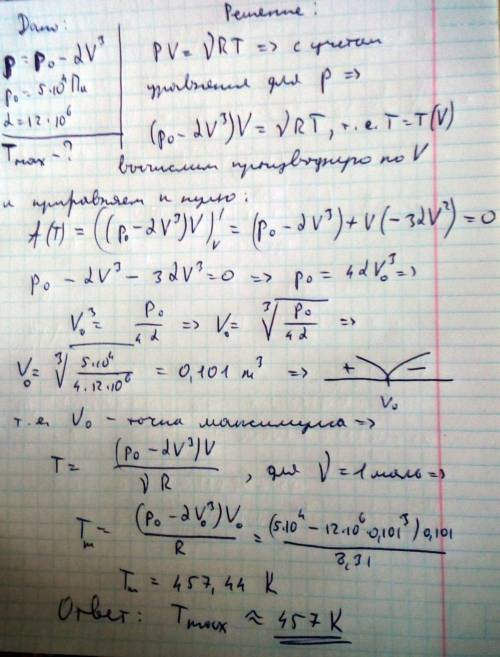 Дано:
p = p₀ - αV³
p₀ = 5·10⁴ Па
α = 12·10⁶
Tmax - ?
Решение:
PV = νRT => с учетом
уравнения для p =>
(p₀ - αV³)V = νRT, т.е. T = T(V)
вычислим производную по V
и приравняем к нулю:
A(T) = ((p₀ - αV³)V)'ᵥ = (p₀ - αV³) + V(-3αV²) = 0
p₀ - αV³ - 3αV³ = 0 => p₀ = 4αV₀³ =>
V₀³ = p₀/4α => V₀ = ∛(p₀/4α) =>
V₀ = ∛(5·10⁴/4·12·10⁶) = 0,101 m³ => + − V₀
т.е. V₀ - точка максимума =>
T = (p₀ - αV³)V / νR, для ν = 1 моль =>
Tm = (p₀ - αV₀³)V₀ / R = (5·10⁴ - 12·10⁶·0,101³)0,101 / 8,31
Tm = 457,44 K
Ответ: Tmax ≈ 457 K